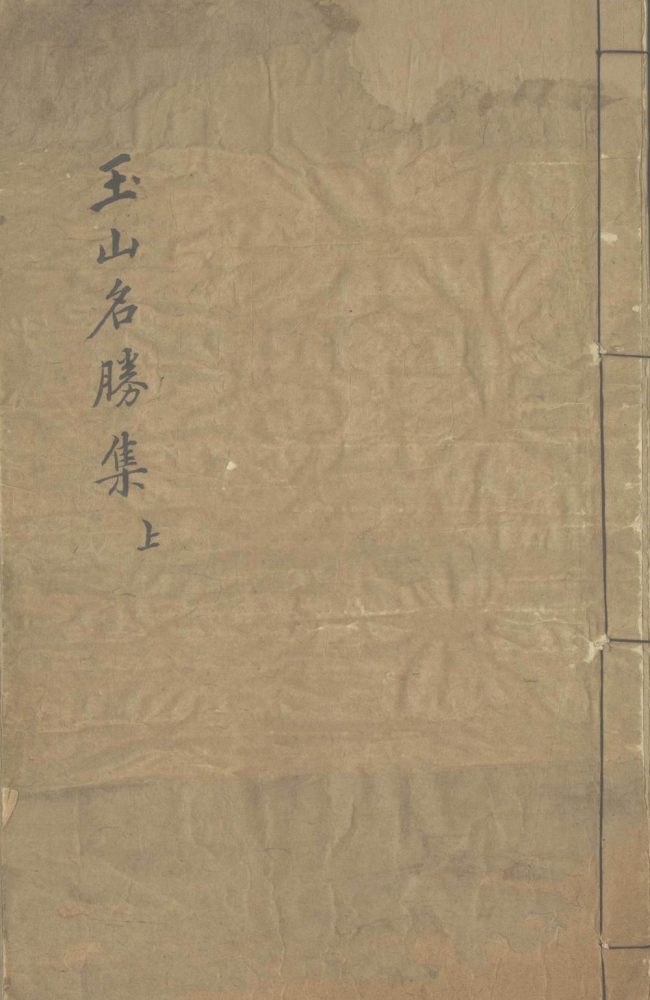 玉山名勝集
上